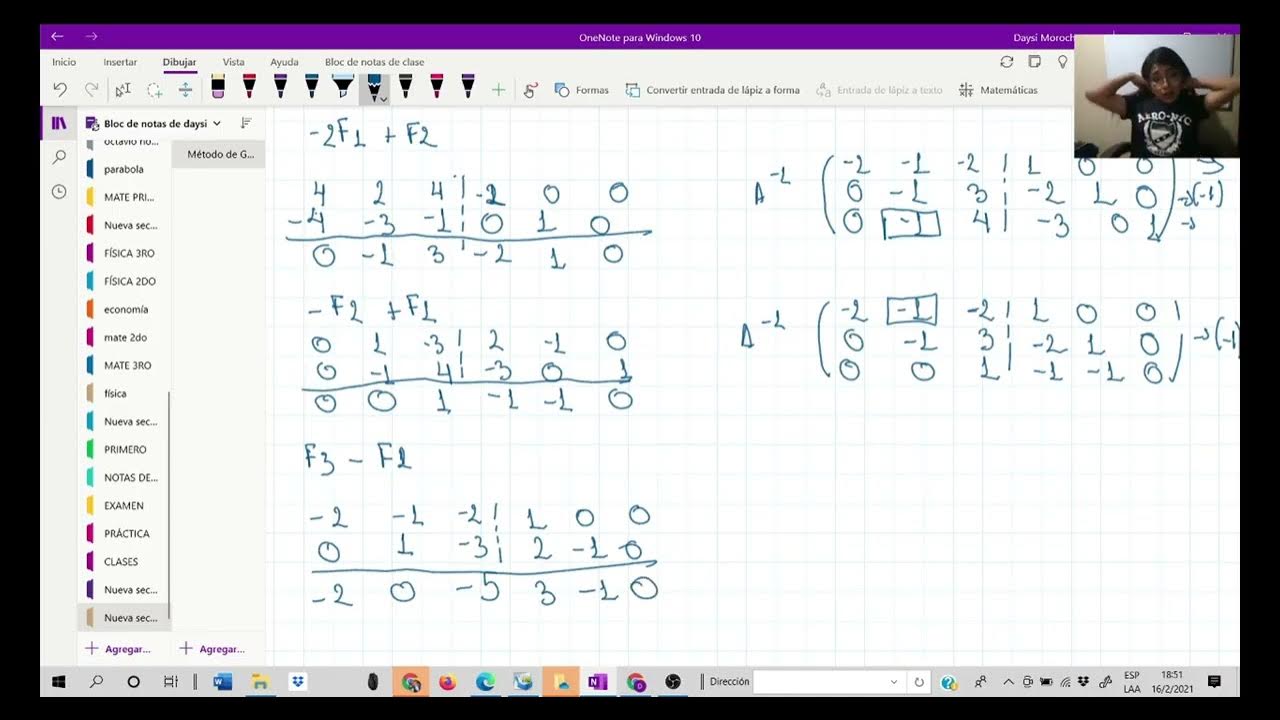 OneNote para Windows 10
Daysi Moroch
Inicio Insertar Dibujar Vista Ayuda Bloc de notas de clase
Formas Convertir entrada de lápiz a forma Entrada de lápiz a texto Matemáticas
Bloc de notas de daysi
octavio no...
Método de G...
parabola
MATE PRI...
Nueva sec...
FÍSICA 3RO
FÍSICA 2DO
economía
mate 2do
MATE 3RO
física
Nueva sec...
PRIMERO
NOTAS DE...
EXAMEN
PRÁCTICA
CLASES
Nueva sec...
Nueva sec...
Agregar... Agregar...
-2F1 + F2
4 2 4 ¦ -2 0 0
-4 -3 -1 ¦ 0 1 0
0 -1 3 ¦ -2 1 0
-F2 + F1
0 1 -3 ¦ 2 -1 0
0 -1 4 ¦ -3 0 1
0 0 1 -1 -1 0
F3 - F2
-2 -1 -2 ¦ 1 0 0
0 1 -3 ¦ 2 -1 0
-2 0 -5 3 -1 0
A -1
-2 -1 -2 ¦ 1 0 0
0 -1 3 ¦ -2 1 0 → (-1)
0 -1 4 ¦ -3 0 1 →
A -1
-2 -1 -2 ¦ 1 0 0
0 -1 3 ¦ -2 1 0 → (-1
0 0 1 ¦ -1 -1 0
AERO-NYC
Dirección
ESP
LAA
18:51
16/2/2021